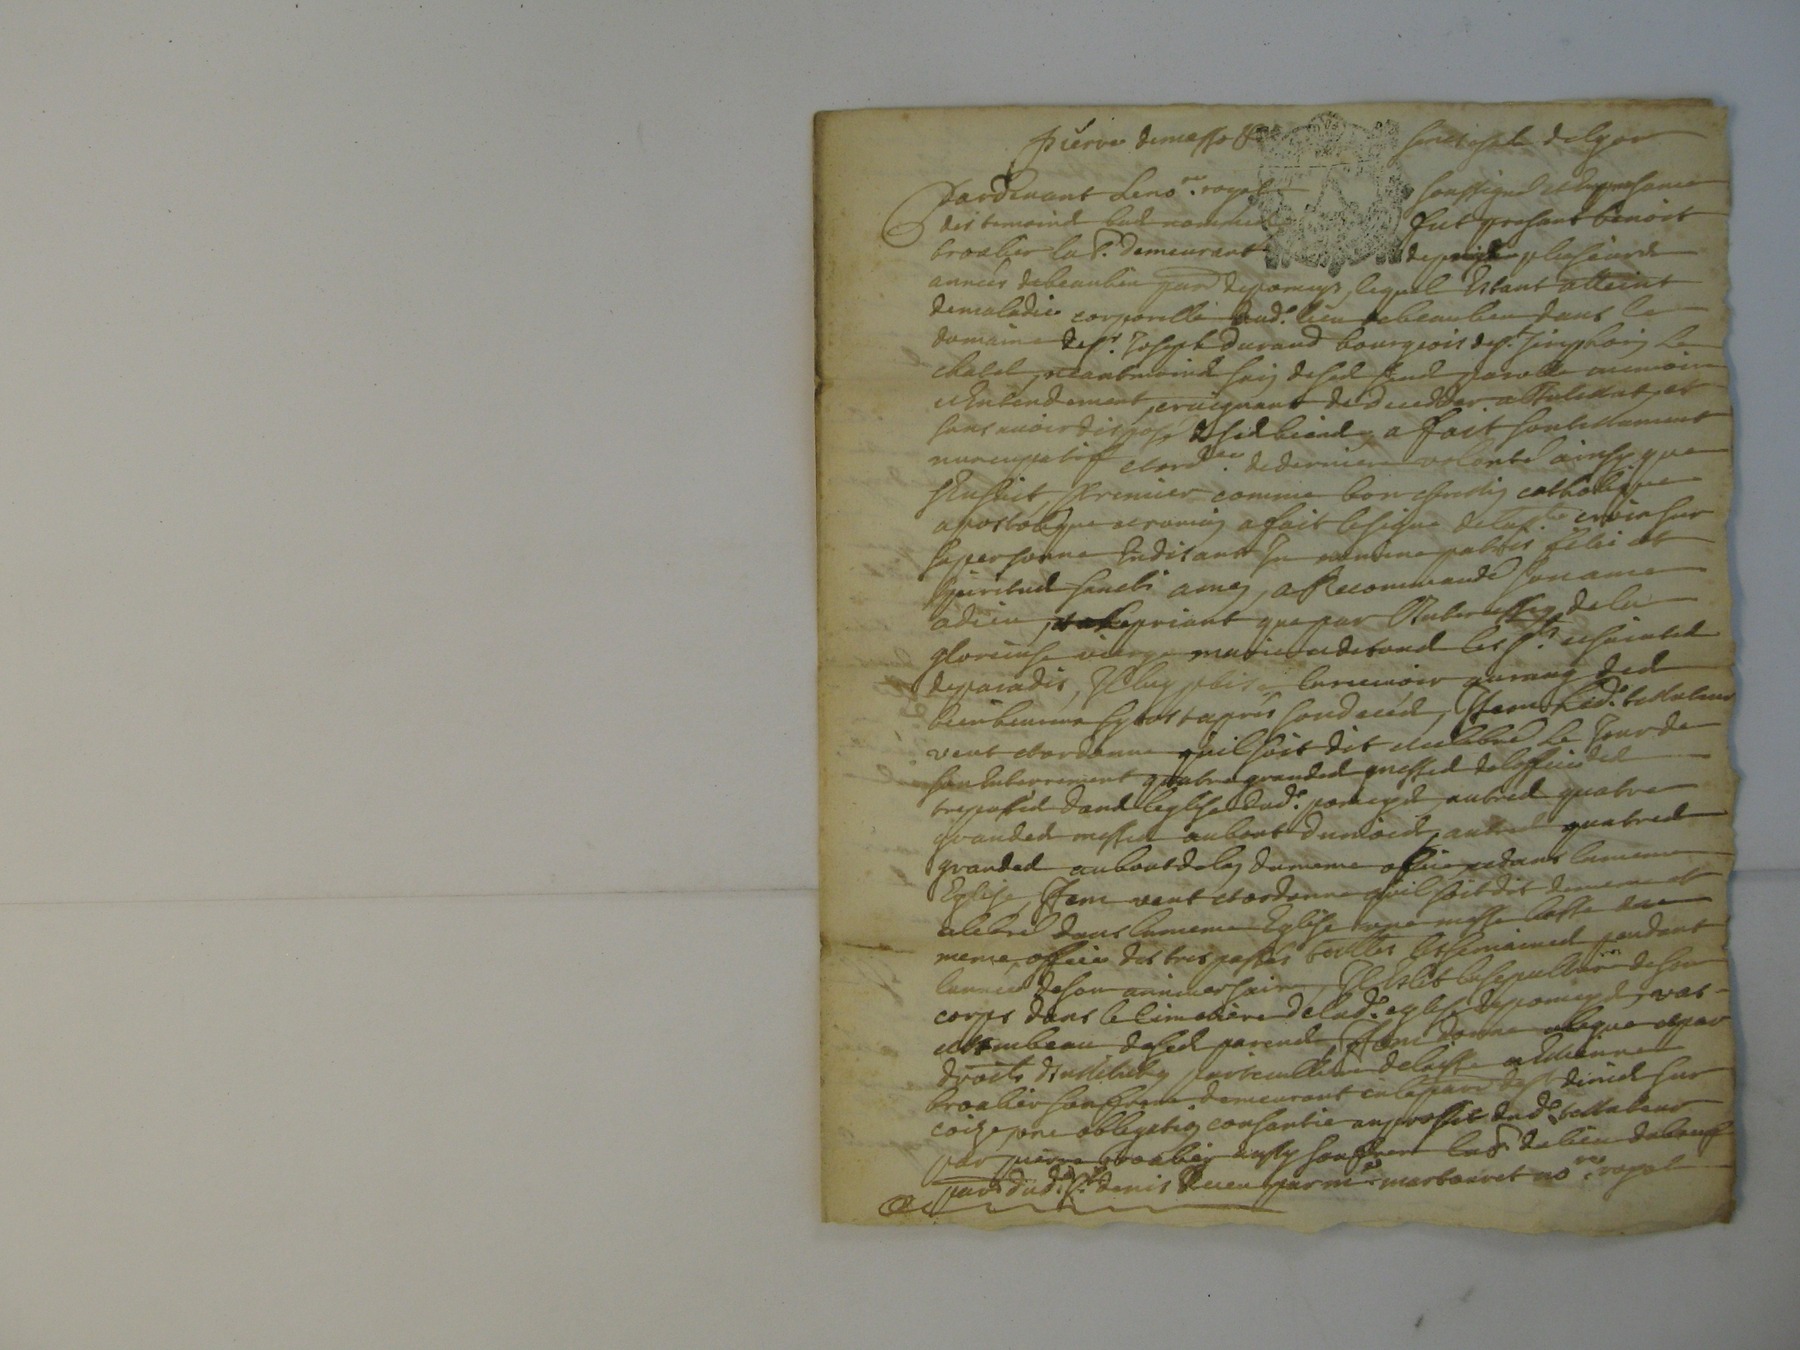 Pierre demasso &c senechal de lyon
Pardevant le no.re royal soussigné et en presance
des temoins bas nommés fut presant benoist
broalier lab.r demeurant depuis plusieurs
années de beaulieu par.se de pomeys, lequel estant atteint
de maladie corporelle aud.t lieu de beaulieu dans le
domaine de s.r Joseph durand bourgeois de s.t simphorin le
chatel, neantmoins sain de ses sens parolle memoire
et entendement, craignant de deceder ab intestat et
sans avoir disposé de ses biens, a fait son testament
nuncupatif et ord.ce de derniere volonté ainsy que
s'ensuit, premier comme bon chrestien catholique
apostolique et romain a fait le signe de la s.te croix sur
sa personne en disant In nomine patris filii et
spiritus sancti amen, a recommandé son ame
a dieu, le priant que par l'intercession de la
glorieuse vierge marie et de tous les s.ts et saintes
de paradis, Il luy plaise la recevoir au rang des
bienheureux esprits apres son decés, Item led.t testateur
veut et ordonne qu'il soit dit et celebré le jour de
son enterrement quatre grandes messes de l'office des
trepassés dans l'eglise dud.t pomeys, autres quatre
grandes messes au bout du mois, autres quatres
grandes au bout de l'an du meme office et dans la meme
Eglise, Item veut et ordonne qu'il soit dit de meme et
celebré dans la meme Eglise une messe basse du
meme office des trespassés touttes les semaines pendant
l'année de son anniversaire, Il eslit la sepulture de son
corps dans le cimetiere de lad.e eglise de pomeys, vas
et tombeau de ses parents, Item donne et legue et par
droit d'institution particulliere delaisse a Estienne
broalier son frere demeurant en la par.se de s.t denis sur
coize, une obligation consantie au proffit dud.t testateur
par pierre broalier aussy son frere lab.r du lieu de
par.se dud.t s.t denis receu par m.e martouret no.re royal